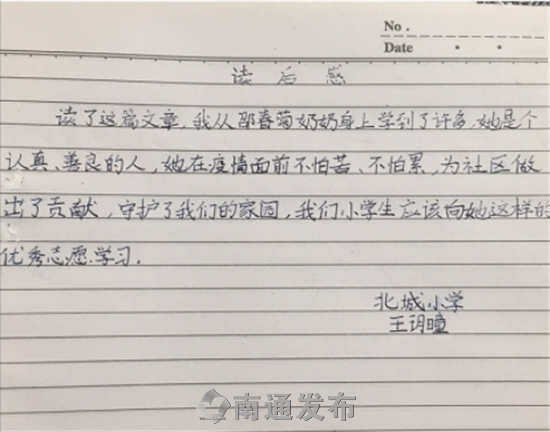 No.
Date
读后感
读了这篇文章,我从邵春菊奶奶身上学到了许多,她是个
认真、善良的人,她在疫情面前不怕苦、不怕累,为社区做
出了贡献,守护了我们的家园,我们小学生应该向她这样的
优秀志愿学习.
北城小学
王玥瞳
南通发布